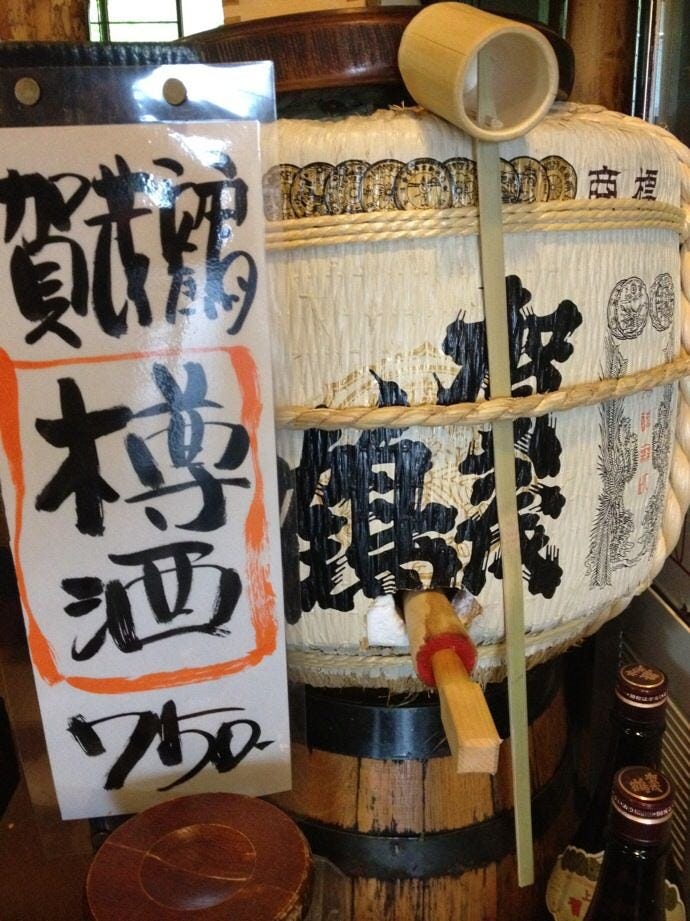 賀茂靏
樽酒
750-
商標
賀茂
鶴